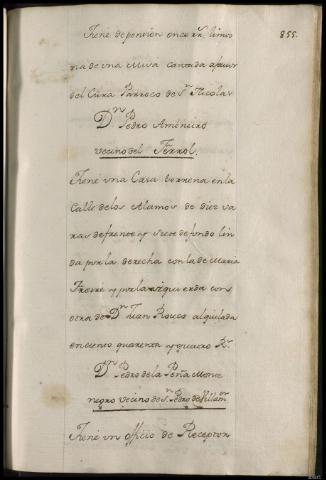 855.
Tiene de pension once rr.ˢ limos
na de una Misa cantada a favor
del Cura Parroco de Sⁿ Nicolas
Dⁿ Pedro Améneiro
vecino del Ferrol.
Tiene una Casa terrena en la
Calle de los Alamos de diez va
ras de frente y siete de fondo lin
da por la derecha con la de Maria
Freire y por la izquierda con
otra de Dⁿ Juan Rouco alquilada
en ciento quarenta y quatro Rˢ
Dⁿ Pedro de la Peña Monte
negro vecino de Sⁿ Pedro de Villam.ᵒʳ
Tiene un officio de Receptor